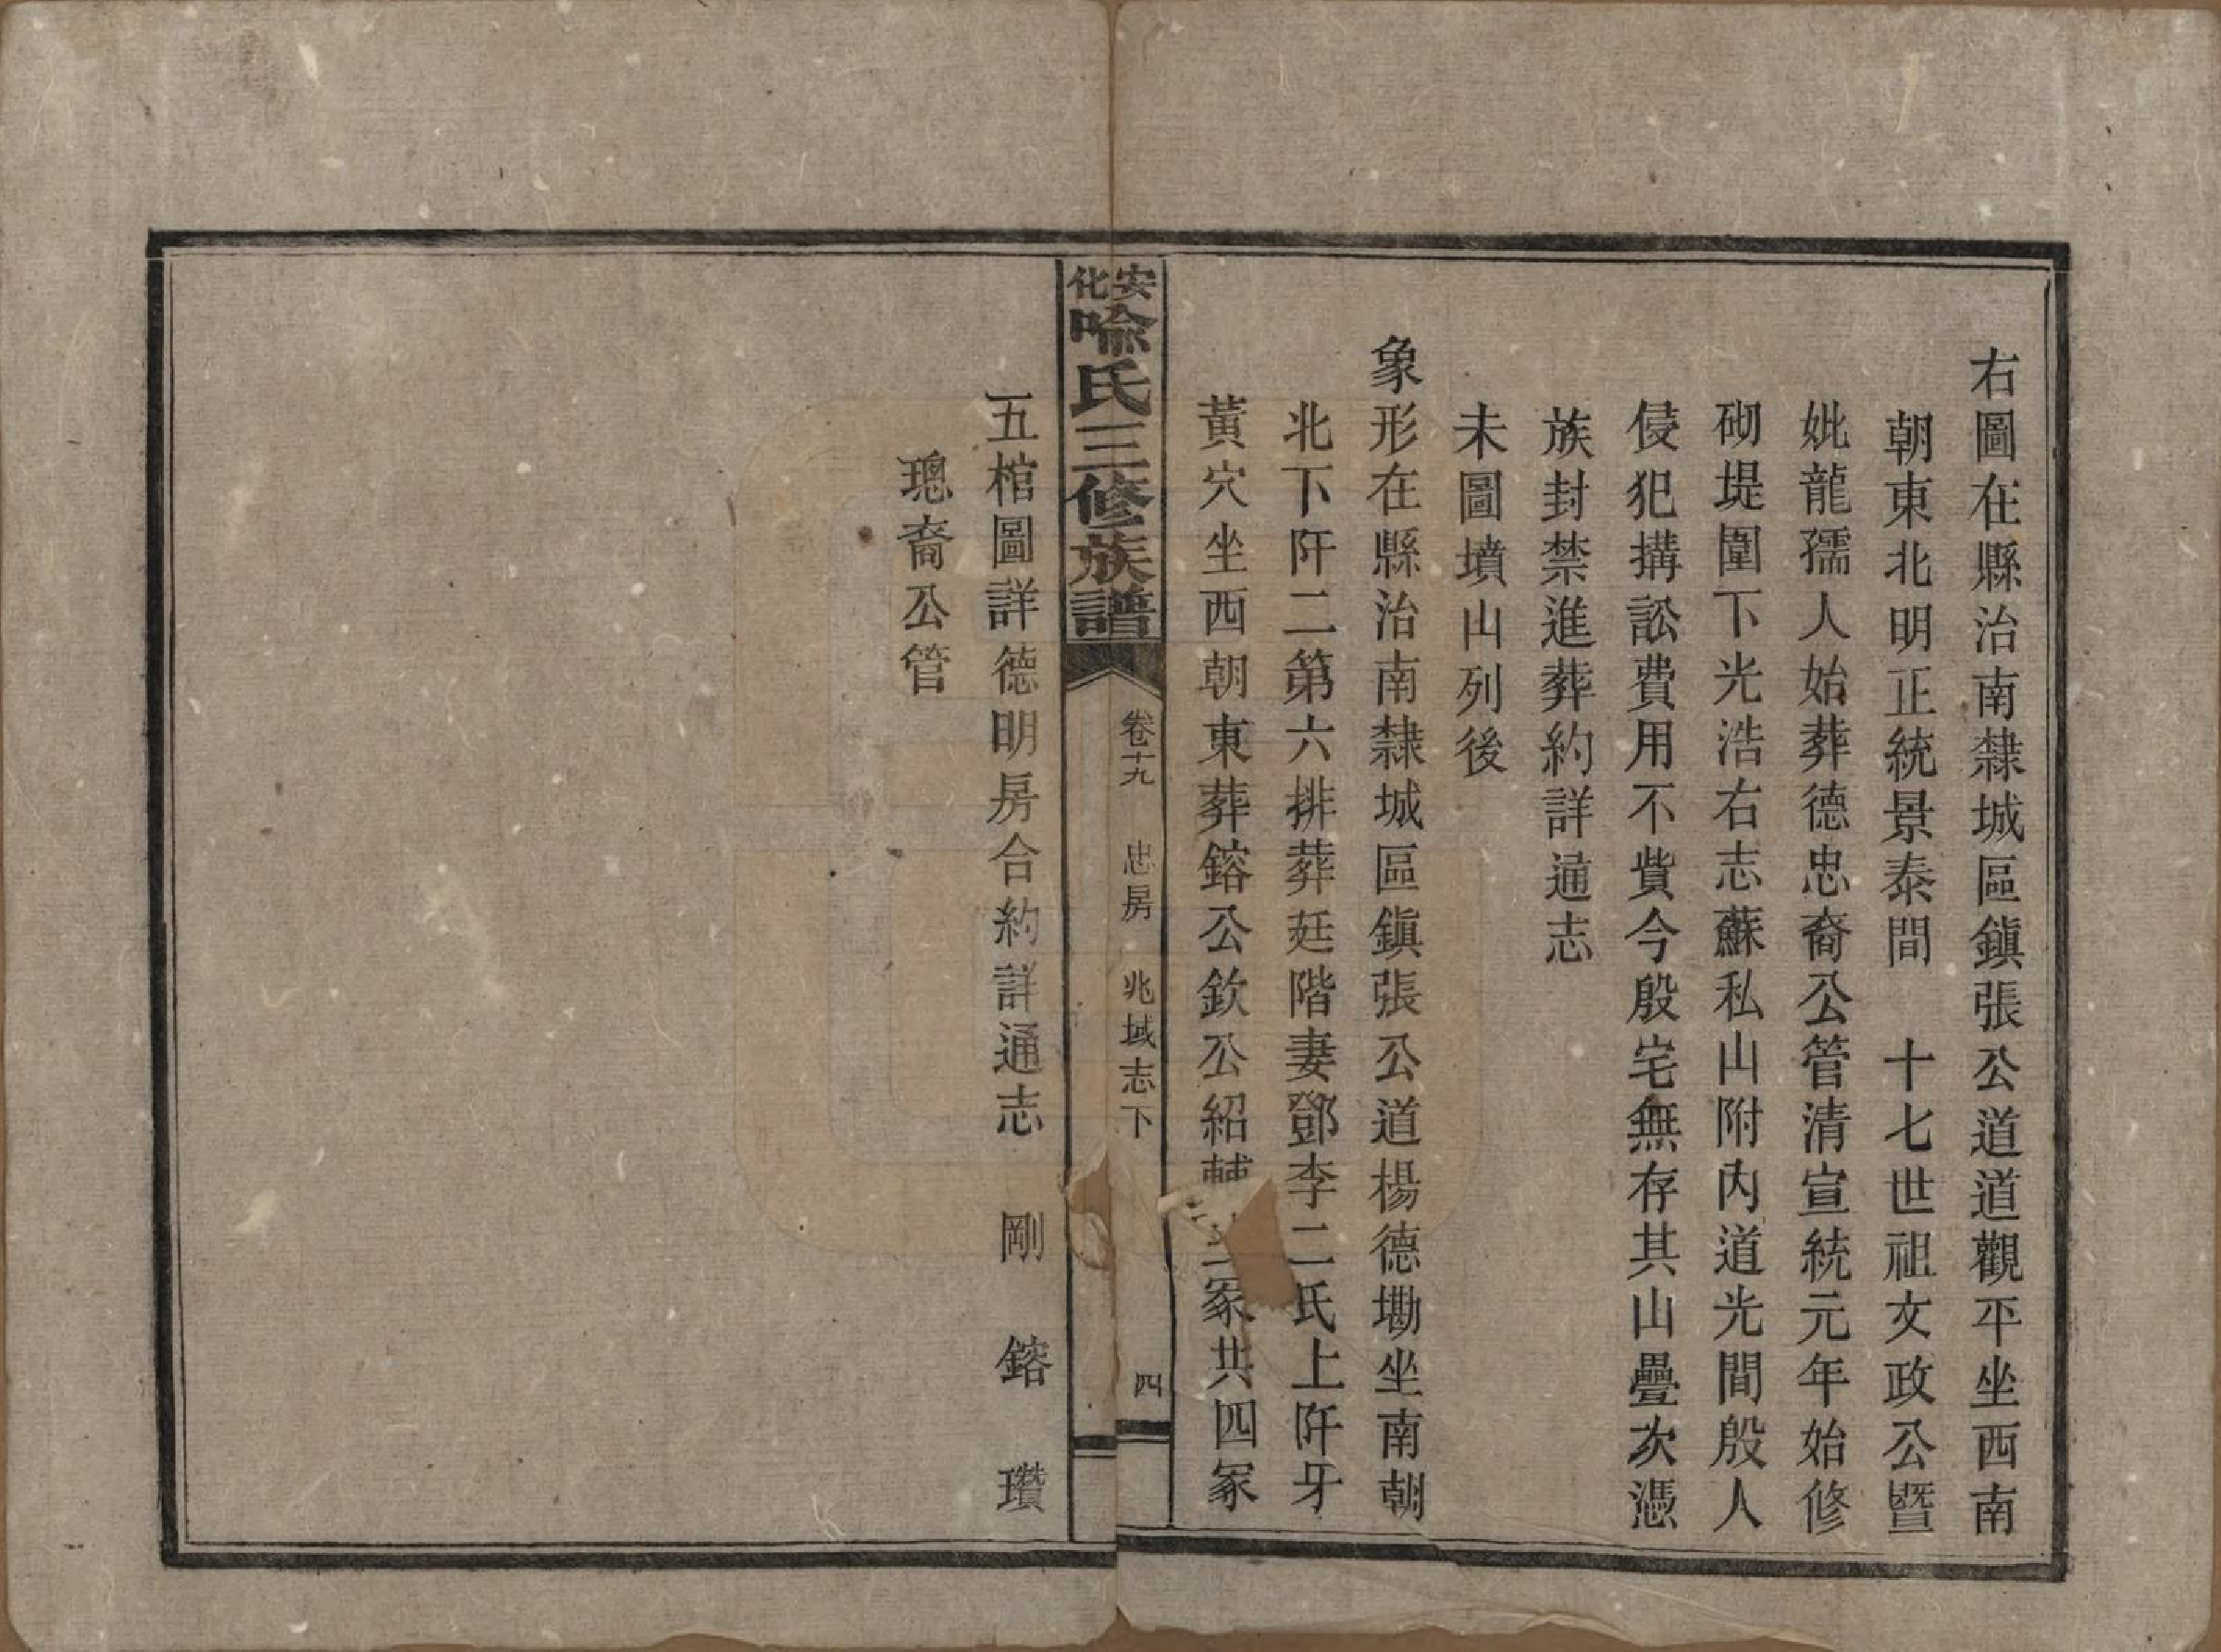 右圖在縣治南隸城區鎮張公道道觀平坐西南
朝東北明正統景泰間 十七世祖文政公暨
妣龍孺人始葬德忠裔公管清宣統元年始修
砌堤圍下光浩右志蘇私山附內道光間殷人
侵犯搆訟費用不貲今殷宅無存其山疊次憑
族封禁進葬約詳通志
未圖墳山列後
象形在縣治南隸城區鎮張公道楊德墈坐南朝
北下阡二第六排葬廷階妻鄧李二氏上阡牙
黃穴坐西朝東葬鎔公欽公紹輔冢共四冢
安化喻氏三修族譜
卷十九 忠房 兆域志下 四
五棺圖詳德明房合約詳通志 剛 鎔 瓚
璁裔公管